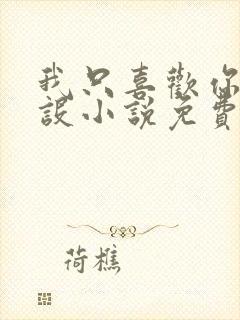 我只喜歡你
設小說免費
荷樵